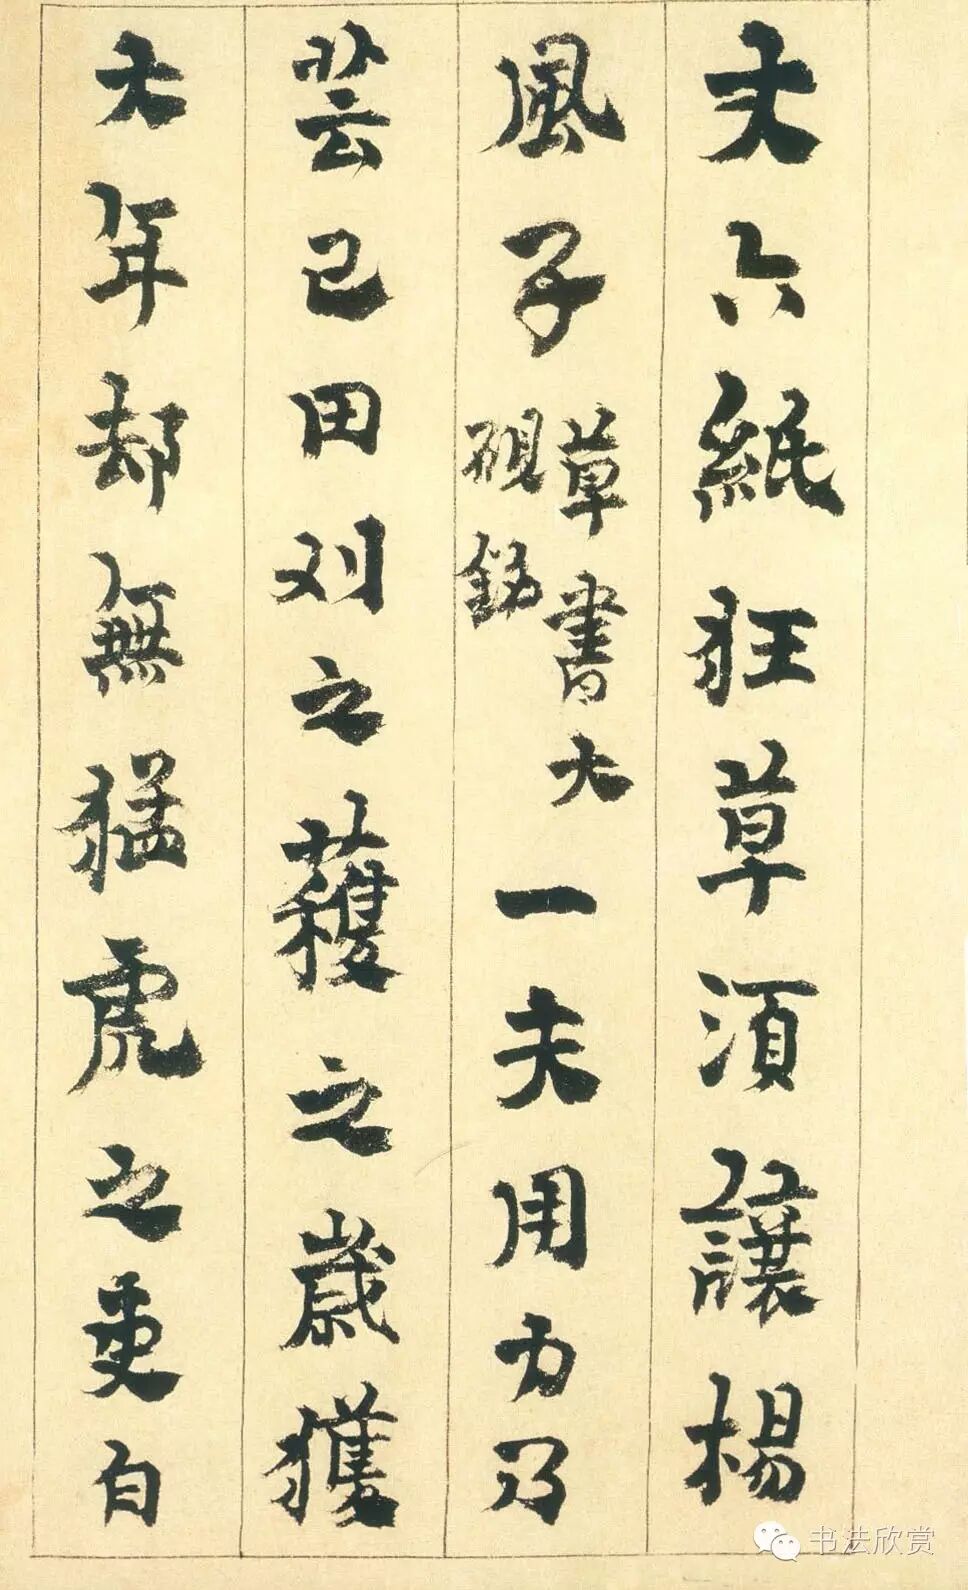 丈六紙狂草須讓楊
風子
草書大
硯銘
一夫用力乃
芸己田刈之穫之歲獲
大年却無猛虎之吏白
书法欣赏